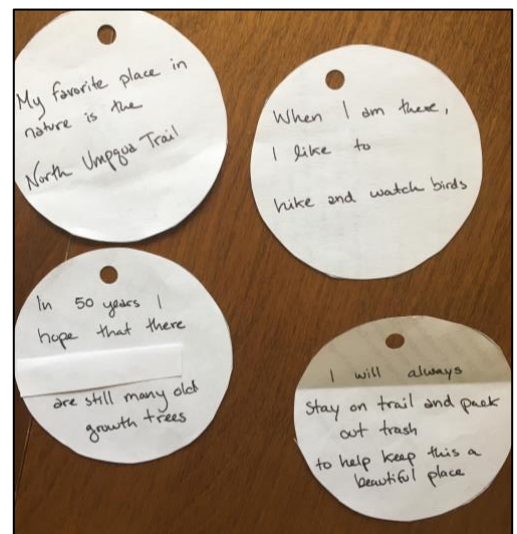 My favorite place in
nature is the
North Umpqua Trail
When I am there,
I like to
hike and watch birds
In 50 years I
hope that there
are still many old
growth trees
I will always
Stay on trail and pack
out trash
to help keep this a
beautiful place